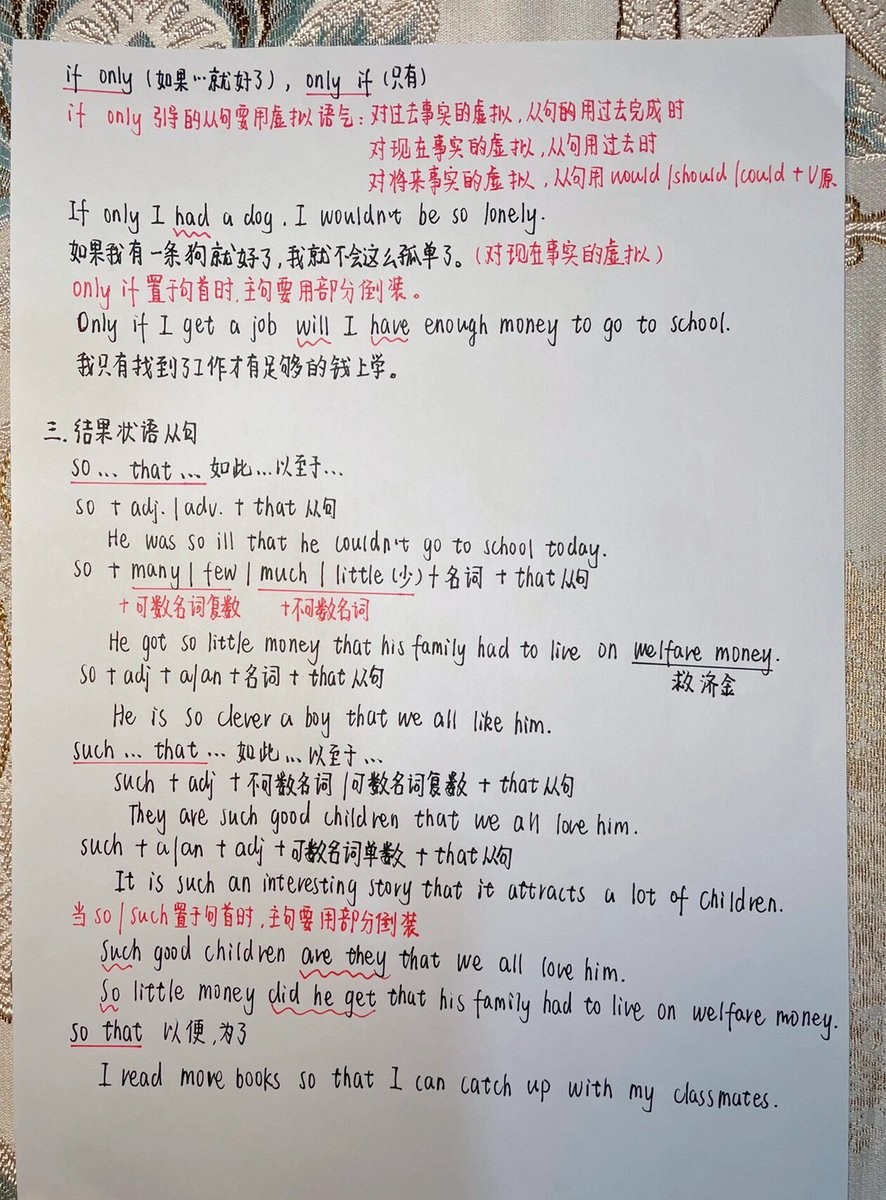 if only (如果…就好了), only if (只有)
if only 引导的从句要用虚拟语气: 对过去事实的虚拟, 从句的用过去完成时
对现在事实的虚拟, 从句用过去时
对将来事实的虚拟, 从句用 would / should / could + V原
If only I had a dog, I wouldn't be so lonely.
如果我有一条狗就好了, 我就不会这么孤单了。(对现在事实的虚拟)
only if 置于句首时, 主句要用部分倒装。
Only if I get a job will I have enough money to go to school.
我只有找到了工作才有足够的钱上学。
三. 结果状语从句
so … that … 如此…以至于…
so + adj. / adv. + that 从句
He was so ill that he couldn't go to school today.
so + many / few / much / little (少) + 名词 + that 从句
+ 可数名词复数 + 不可数名词
He got so little money that his family had to live on welfare money.
救济金
so + adj + a/an + 名词 + that 从句
He is so clever a boy that we all like him.
such … that … 如此…以至于…
such + adj + 不可数名词 / 可数名词复数 + that 从句
They are such good children that we all love him.
such + a/an + adj + 可数名词单数 + that 从句
It is such an interesting story that it attracts a lot of children.
当 so / such 置于句首时, 主句要用部分倒装
Such good children are they that we all love him.
So little money did he get that his family had to live on welfare money.
so that 以便, 为了
I read more books so that I can catch up with my classmates.